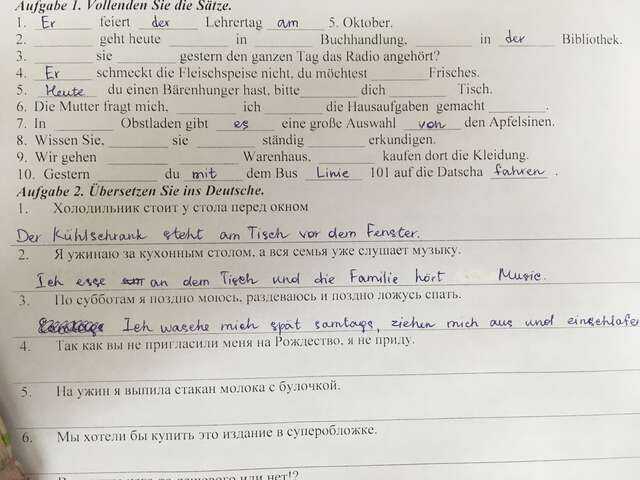 Aufgabe 1. Vollenden Sie die Sätze.
1. Er feiert der Lehrertag am 5. Oktober.
2. ________ geht heute ________ ________ Buchhandlung, ________ in der Bibliothek.
3. ________ sie ________ gestern den ganzen Tag das Radio angehört?
4. Er schmeckt die Fleischspeise nicht, du möchtest ________ Frisches.
5. Heute du einen Bärenhunger hast, bitte ________ dich ________ Tisch.
6. Die Mutter fragt mich, ________ ich ________ die Hausaufgaben gemacht ________.
7. In ________ Obstladen gibt es eine große Auswahl von den Apfelsinen.
8. Wissen Sie, ________ sie ________ ständig ________ erkundigen.
9. Wir gehen ________ ________ Warenhaus, ________ kaufen dort die Kleidung.
10. Gestern ________ du mit dem Bus Linie 101 auf die Datscha fahren.
Aufgabe 2. Übersetzen Sie ins Deutsche.
1. Холодильник стоит у стола перед окном
Der Kühlschrank steht am Tisch vor dem Fenster.
2. Я ужинаю за кухонным столом, а вся семья уже слушает музыку.
Ich esse an dem Tisch und die Familie hört Music.
3. По субботам я поздно моюсь, раздеваюсь и поздно ложусь спать.
Ich wasche mich spät samtags, ziehen mich aus und einschlafe
4. Так как вы не пригласили меня на Рождество, я не приду.
5. На ужин я выпила стакан молока с булочкой.
6. Мы хотели бы купить это издание в суперобложке.